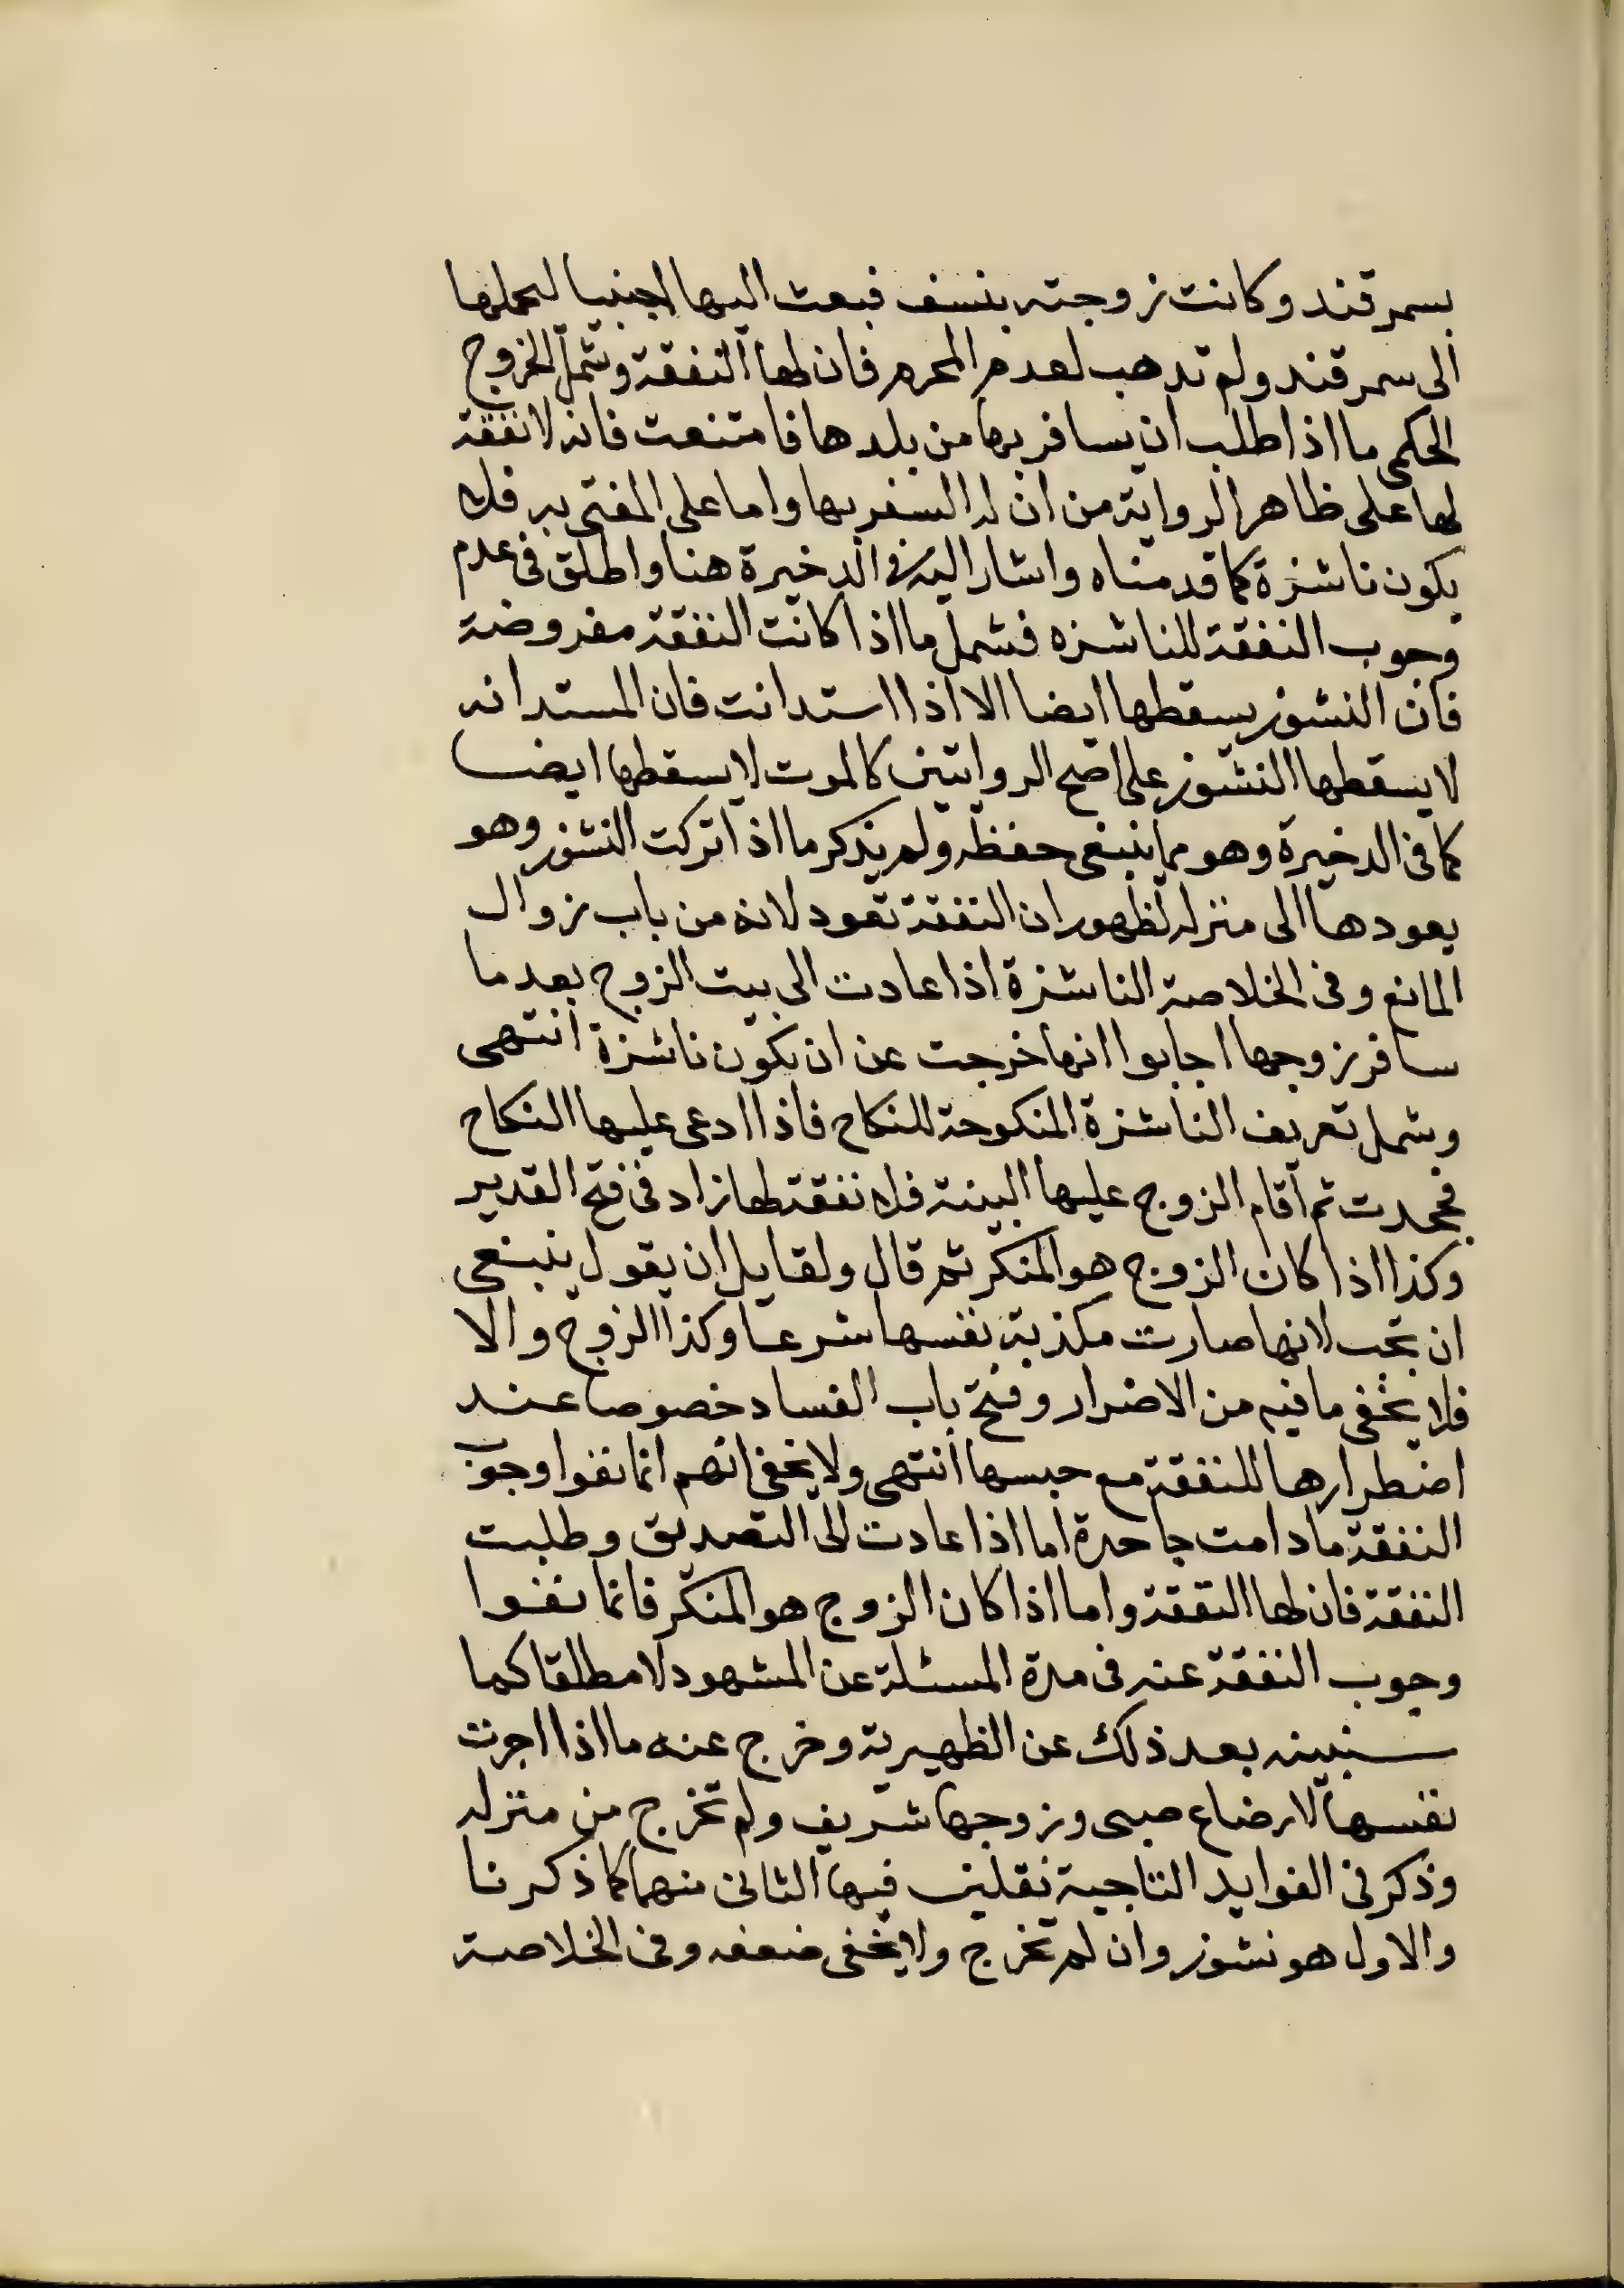 بسمرقند وكانت زوجته بنسف فبعث اليها اجنبيا ليحملها
الى سمرقند ولم تذهب لعدم المحرم فان لها النفقة وشمل الخروج
الحكمي ما اذا طلب ان يسافر بها من بلدها فامتنعت فانه لا نفقة
لها على ظاهر الرواية من ان له السفر بها واما على المفتى به فلا
يكون ناشزة كما قدمناه واشار اليه في الدخيرة هنا واطلق في عدم
وجوب النفقة للناشزه فشمل ما اذا كانت النفقة مفروضة
فان النشوز يسقطها ايضا الا اذا استدانت فان المستدانه
لا يسقطها النشوز على اصح الروايتين كالموت لا يسقطها ايضا
كما في الدخيرة وهو مما ينبغي حفظه ولم يذكر ما اذا تركت النشوز وهو
يعودها الى منزله لظهور ان النفقة تعود لانه من باب زوال
المانع وفي الخلاصة الناشزة اذا عادت الى بيت الزوج بعد ما
سافر زوجها اجابوا انها خرجت عن ان تكون ناشزة انتهى
وشمل تعريف الناشزة المنكوحة للنكاح فاذا ادعى عليها النكاح
فجحدت ثم اقام الزوج عليها البينة فلا نفقة لها زاد في فتح القدير
وكذا اذا كان الزوج هو المنكر ثم قال ولقايل ان يقول ينبغي
ان تجب لانها صارت مكذبة نفسها شرعا وكذا الزوج والا
فلا يخفى ما فيه من الاضرار وفتح باب الفساد خصوصا عند
اضطرارها للنفقة مع حبسها انتهى ولا يخفى انهم انما نفوا وجوب
النفقة ما دامت جاحدة اما اذا عادت الى التصديق وطلبت
النفقة فان لها النفقة واما اذا كان الزوج هو المنكر فانما نفوا
وجوب النفقة عنه في مدة المسئلة عن المشهود لا مطلقا كما
سنبينه بعد ذلك عن الظهيرية وخرج عنه ما اذا اجرت
نفسها لارضاع صبي وزوجها شريف ولم تخرج من منزله
وذكر في الفوايد التاجية نقلين فيها الثاني منهما كما ذكرنا
والاول هو نشوز وان لم تخرج ولا يخفى ضعفه وفي الخلاصة